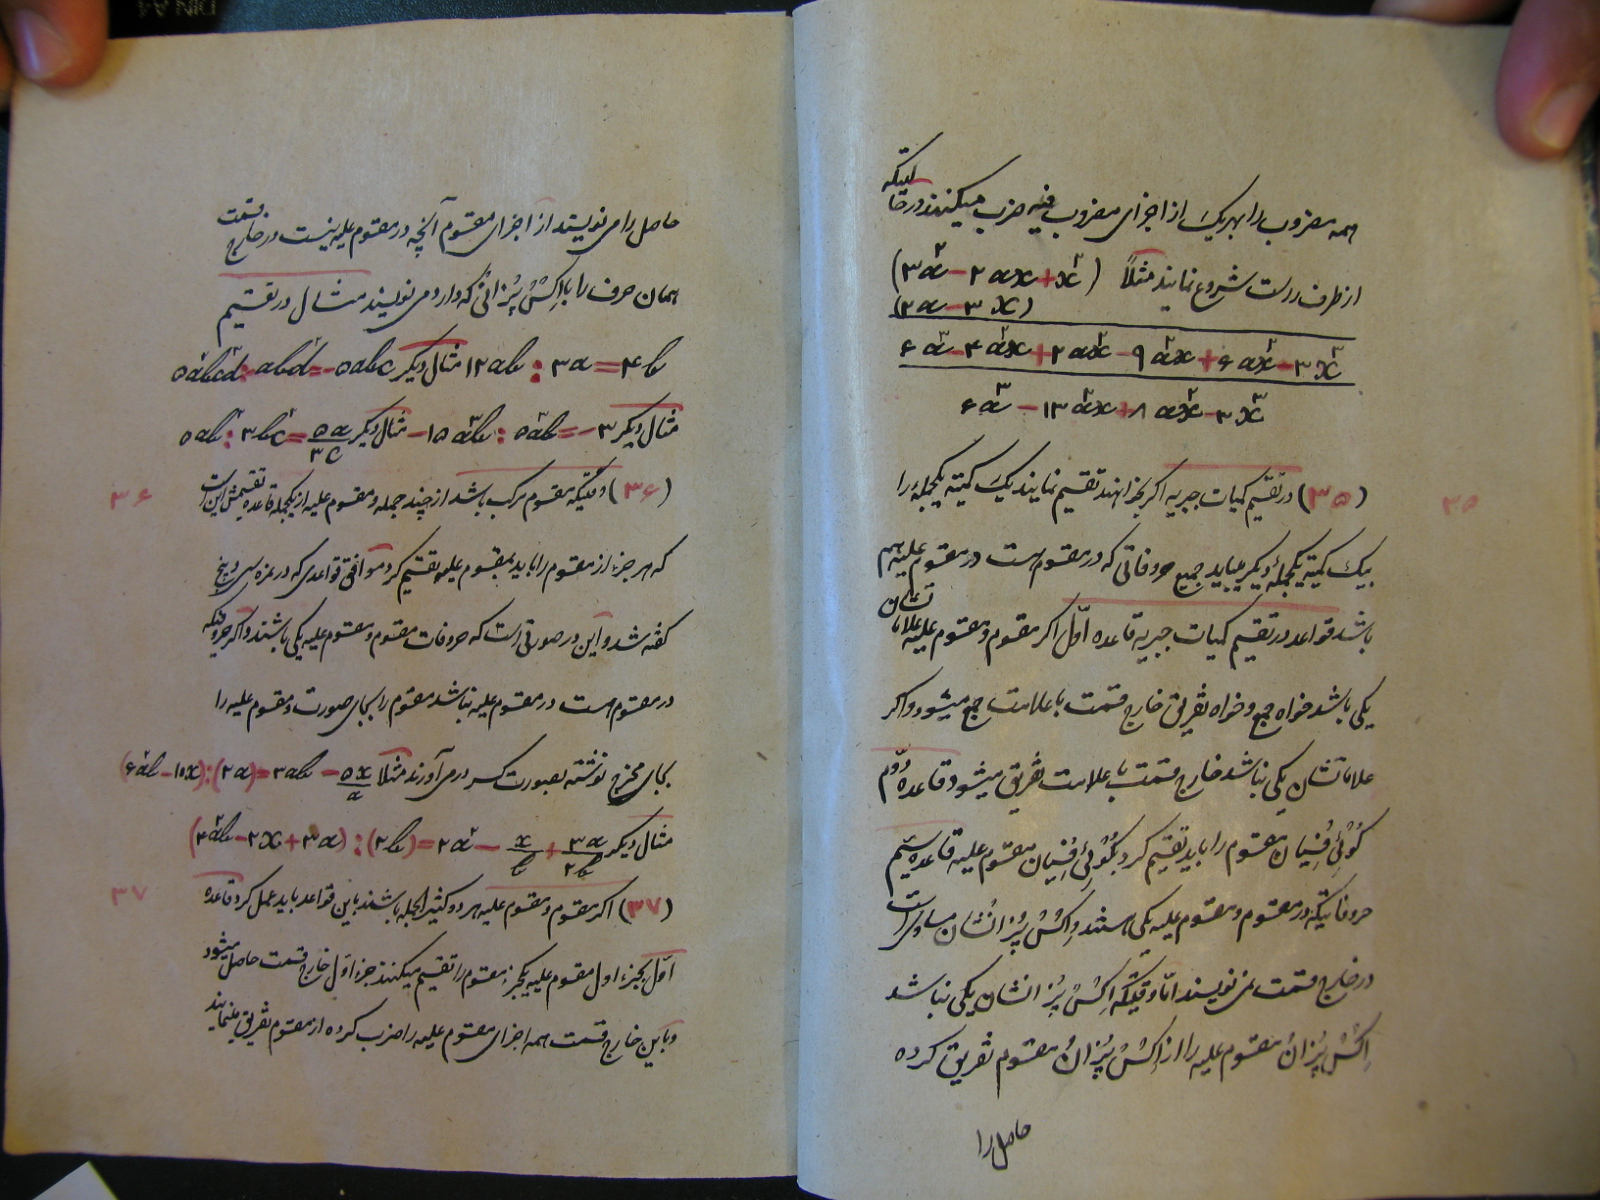 همه مضروب را بهریک از اجزای مضروب فیه ضرب میکنند در حالتیکه
از طرف راست شروع نمایند مثلاً (۳a² − ۲ax + x²)
(۲a − ۳x)
۶a³ − ۴a²x + ۲ax² − ۹a²x + ۶ax² − ۳x³
۶a³ − ۱۳a²x + ۸ax² − ۳x³
(۳۵) در تقسیم کمیات جبریه اگر بخواهند تقسیم نمایند یک کمیته یکجمله را
۳۵
بیک کمیته یکجمله دیگر بباید جمیع حروفاتی که در مقسوم است در مقسوم علیه هم
باشد قواعد در تقسیم کمیات جبریه قاعده اوّل اگر مقسوم و مقسوم علیه علاماتشان
یکی باشد خواه جمع و خواه تفریق خارج قسمت با علامت جمع میشود و اگر
علاماتشان یکی نباشد خارج قسمت با علامت تفریق میشود قاعده دوّم
کُوئِفیِسیان مقسوم را باید تقسیم کرد بکُوئِفیِسیان مقسوم علیه قاعده سیّم
حروفاتیکه در مقسوم و مقسوم علیه یکی هستند و اِکسْپُزانشان مساوی است
در خارج قسمت نمی نویسند امّا وقتیکه اِکسْپُزانشان یکی نباشد
اِکسْپُزانْ مقسوم علیه را از اِکسْپُزانْ مقسوم تفریق کرده
حاصل را
حاصل را می نویسند از اجزای مقسوم آنچه در مقسوم علیه نیست در خارج قسمت
همان حرف را با اِکسْپُزانی که دارد می نویسند مثال در تقسیم
۱۲ab : ۳a = ۴b مثال دیگر ۵a²b²cd² : −abd² = −۵abc
مثال دیگر −۱۵a³b : ۵a²b = −۳ مثال دیگر ۵ab² : ۳b²c = ۵a/۳c
(۳۶) وقتیکه مقسوم مرکب باشد از چند جمله و مقسوم علیه از یکجمله قاعده تقسیمش این است
۳۶
که هر جزء از مقسوم را باید بمقسوم علیه تقسیم کرد موافق قواعدی که در نمره سی و پنج
گفته شد و این در صورتی است که حروفات مقسوم و مقسوم علیه یکی باشند و اگر حروفیکه
در مقسوم است در مقسوم علیه نباشد مقسوم را بجای صورت و مقسوم علیه را
بجای مخرج نوشته بصورت کسر در می آورند مثلاً (۶a²b − ۱۰x) : (۲a) = ۳ab − ۵x/a
مثال دیگر (۴a²b − ۲x + ۳a) : (۲b) = ۲a² − x/b + ۳a/۲b
(۳۷) اگر مقسوم و مقسوم علیه هر دو کثیر الجمله باشند باین قواعد باید عمل کرد قاعده
۳۷
اوّل بجزء اول مقسوم علیه یکجزء مقسوم را تقسیم میکنند جزء اوّل خارج قسمت حاصل میشود
و باین خارج قسمت همه اجزای مقسوم علیه را ضرب کرده از مقسوم تفریق مینمایند